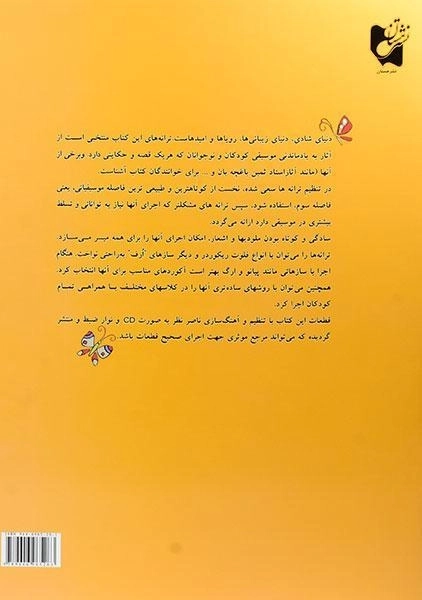 نشر هستان
دنیای شادی، دنیای زیبائی‌ها، رویاها و امیدهاست. ترانه‌های این کتاب منتخبی است از
آثار به یادماندنی موسیقی کودکان و نوجوانان که هریک قصه و حکایتی دارد وبرخی از
آنها (مانند آثاراستاد ثمین باغچه بان و ... برای خوانندگان کتاب آشناست.
در تنظیم ترانه ها سعی شده، نخست از کوتاهترین و طبیعی ترین فاصله موسیقیائی، یعنی
فاصله سوم، استفاده شود، سپس ترانه های مشکلتر که اجرای آنها نیاز به توانائی و تسلط
بیشتری در موسیقی دارد ارائه می‌گردد.
سادگی و کوتاه بودن ملودیها و اشعار، امکان اجرای آنها را برای همه میسر می‌سازد.
ترانه‌ها را می‌توان با انواع فلوت ریکوردر و دیگر سازهای "اُرف" به‌راحتی نواخت. هنگام
اجرا با سازهائی مانند پیانو و ارگ بهتر است آکوردهای مناسب برای آنها انتخاب کرد.
همچنین می‌توان با روشهای ساده‌تری آنها را در کلاسهای مختلف با همراهی تمام
کودکان اجرا کرد.
قطعات این کتاب با تنظیم و آهنگ‌سازی ناصر نظر به صورت CD و نوار ضبط و منتشر
گردیده که می‌تواند مرجع موثری جهت اجرای صحیح قطعات باشد.